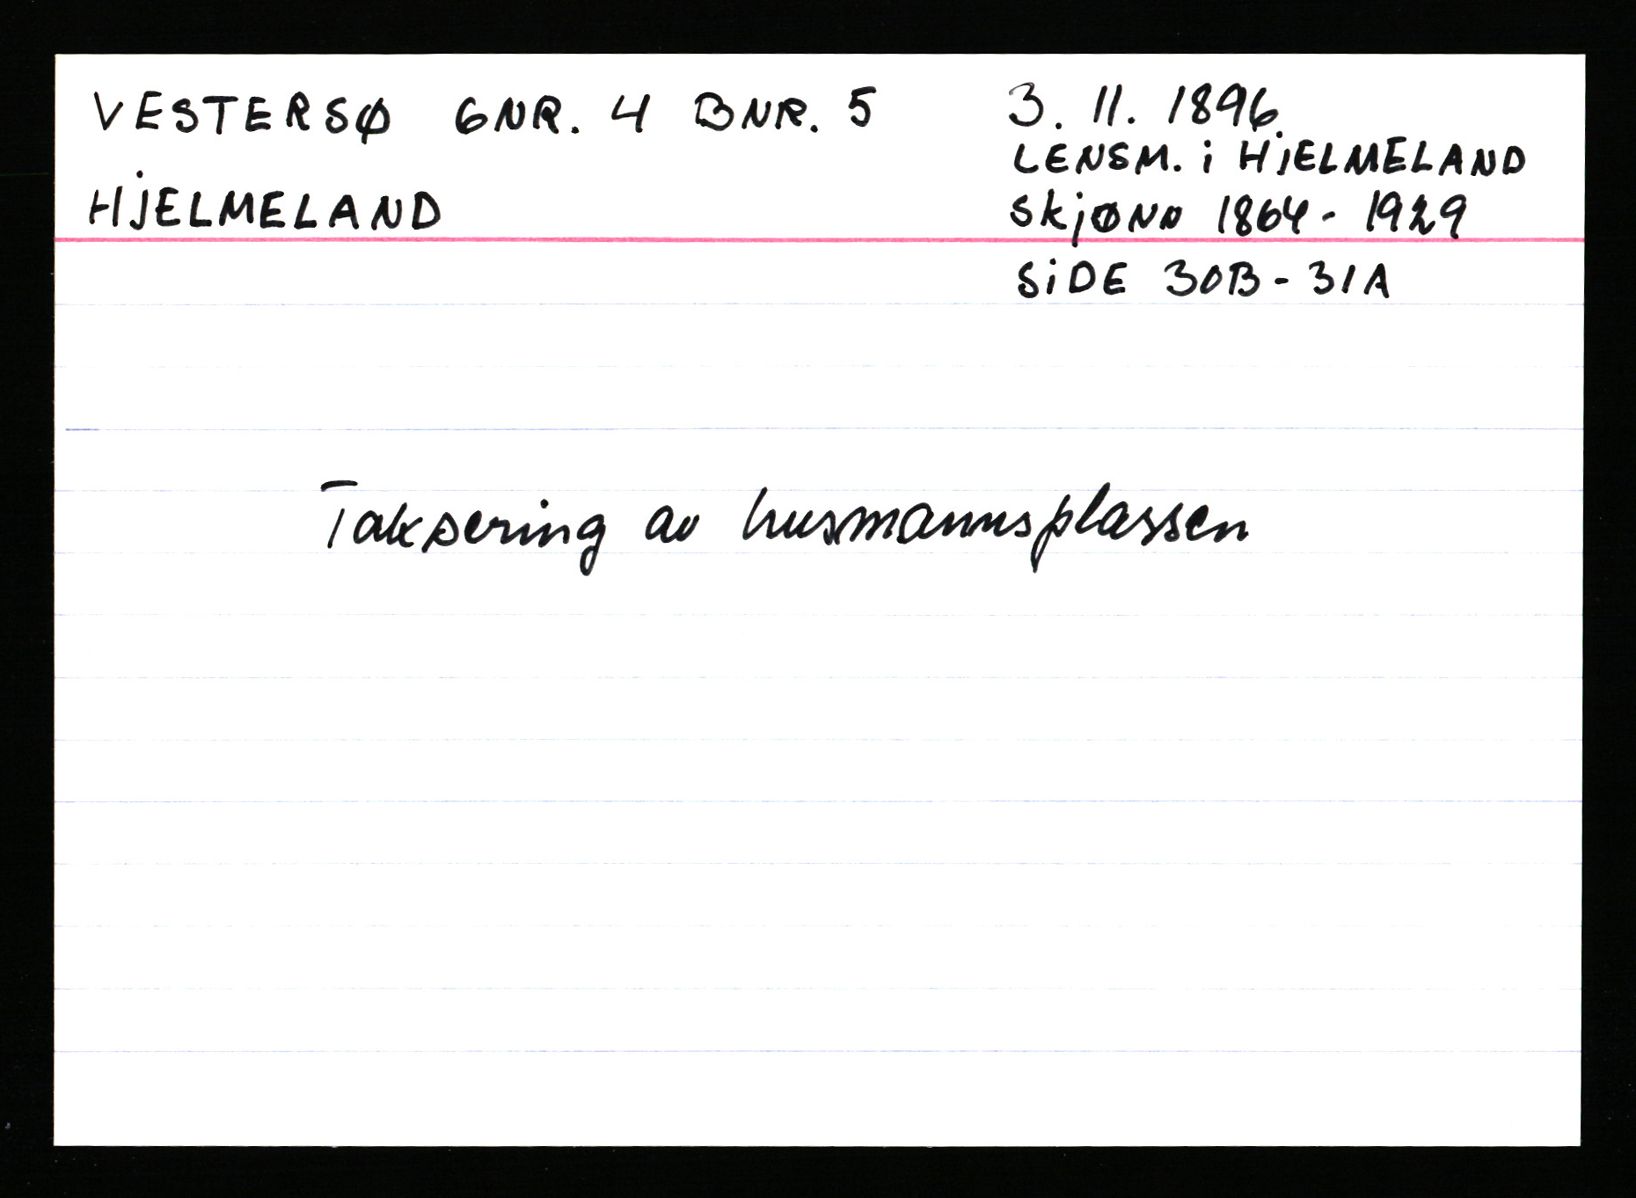 VESTERSØ GNR. 4 BNR. 5
HJELMELAND
3. 11. 1896
LENSM. i HJELMELAND
SKJØNN 1864 - 1929
SIDE 30B - 31A
Taksering av husmannsplassen